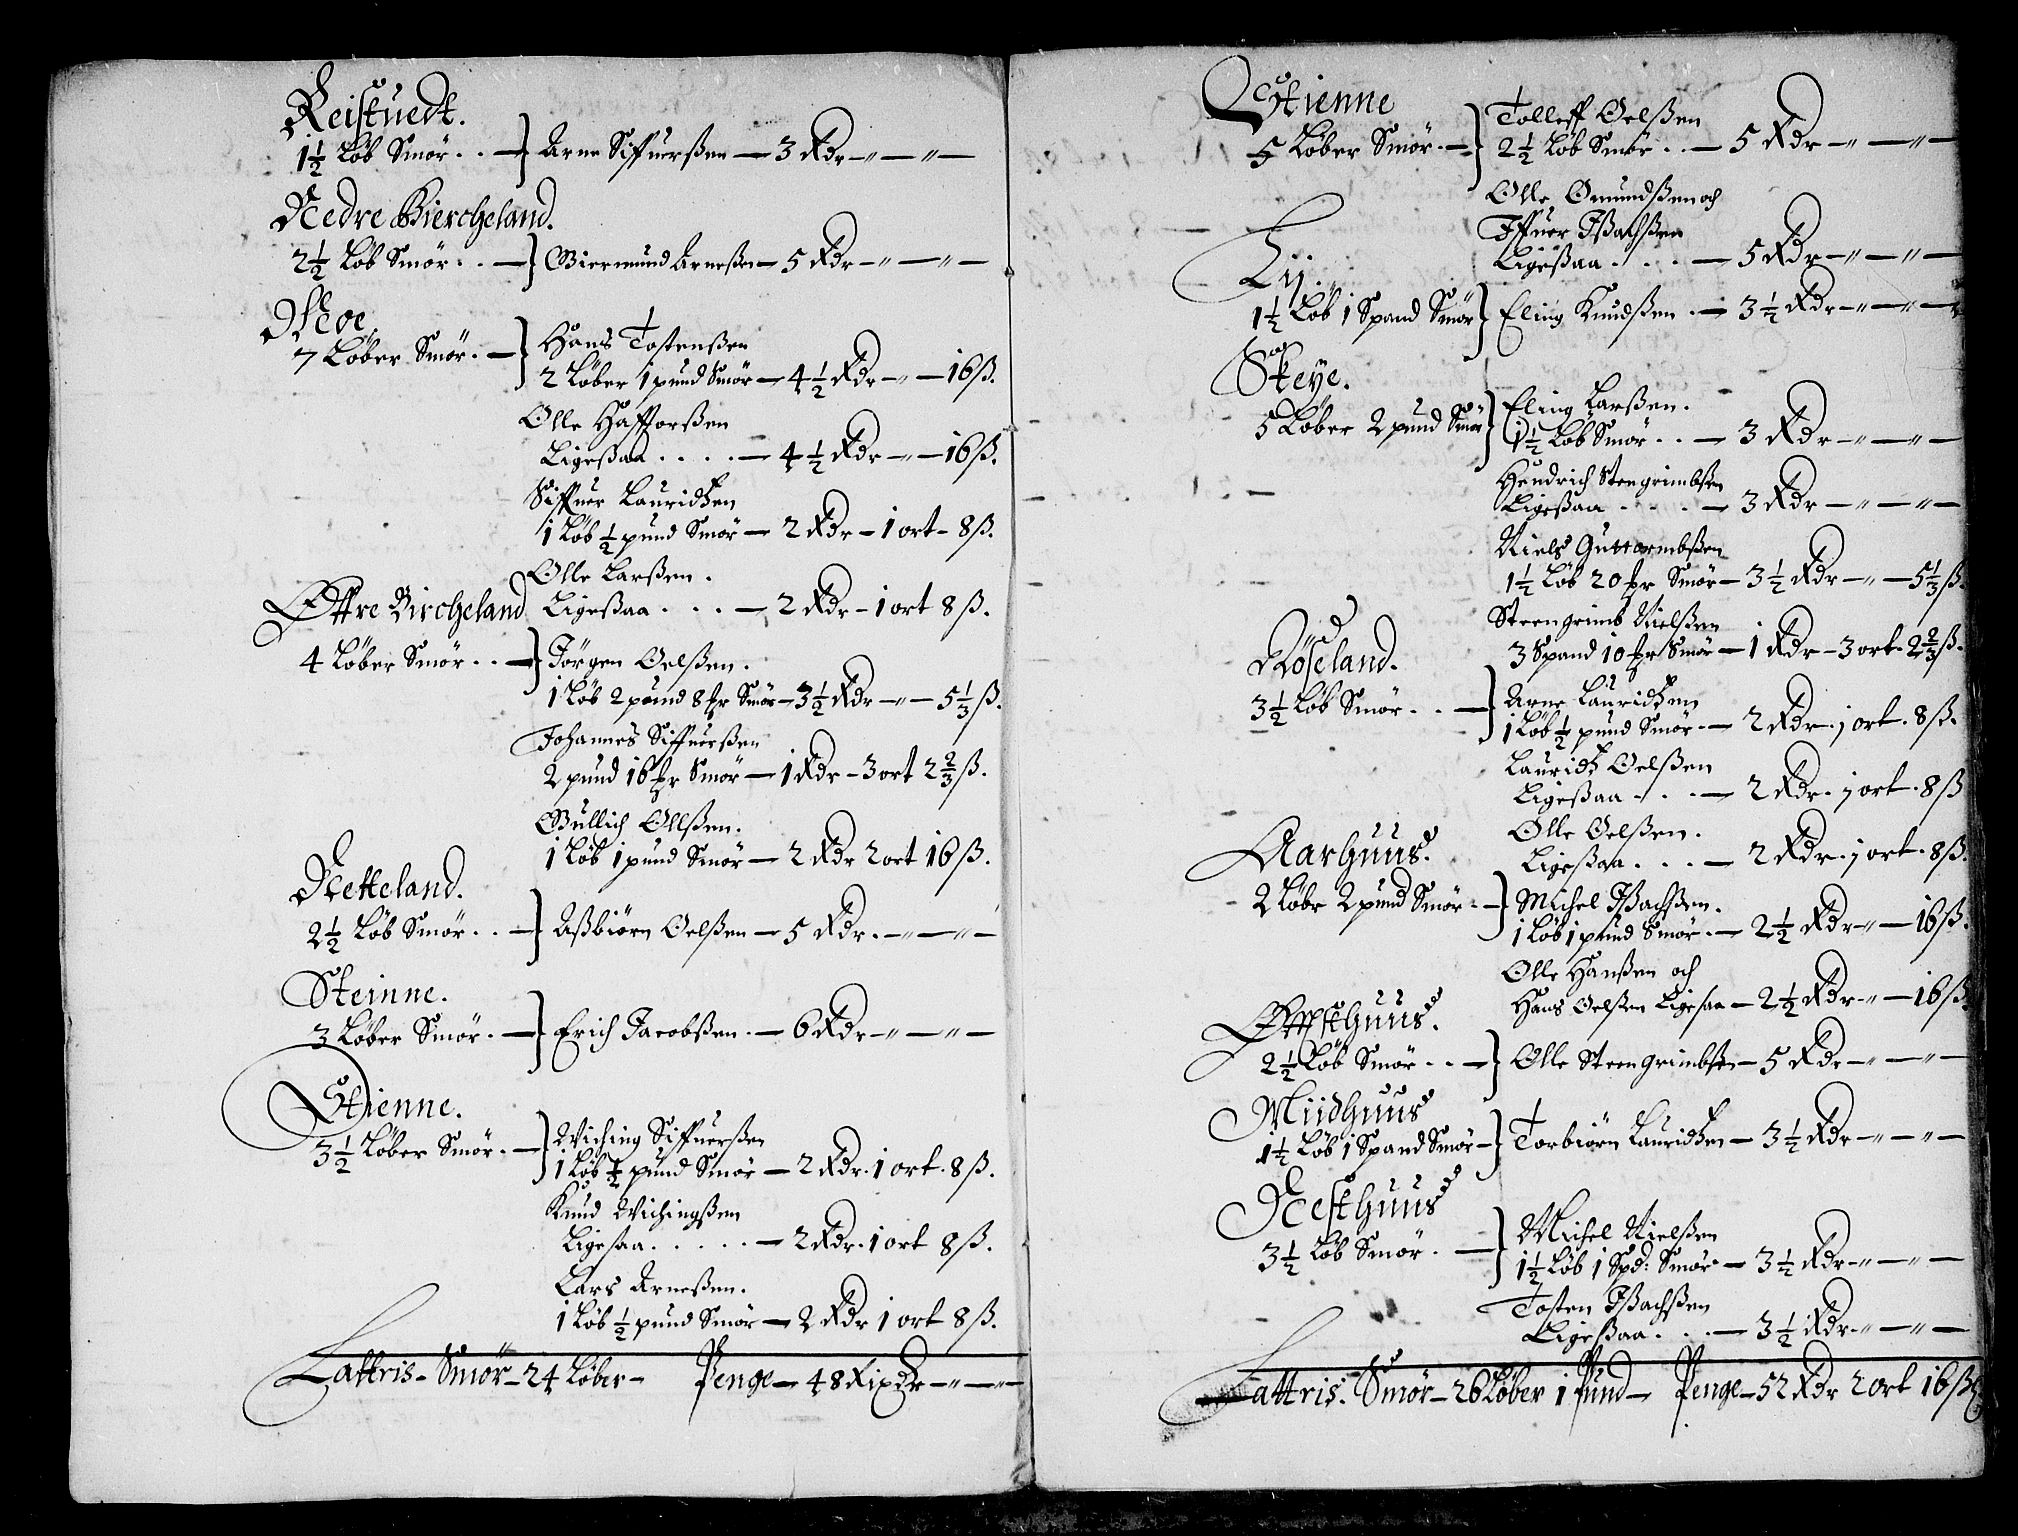 Reistuedt.
1½ Løb Smør . . — Arne Siffuersßen — 3 Rdr —〃—〃—
Nedre Biercheland.
2½ Løb Smør . . — Giermund Arneßen — 5 Rdr —〃—〃—
Noe,
7 Løber Smør . — Hans Tostenßen
2 Løber 1 pund Smør — 4½ Rdr —〃— 16 ß.
Olle Haffforßen
Ligeßaa . . . . — 4½ Rdr —〃— 16 ß.
Siffuer Lauridzen
1 Løb ½ pund Smør — 2 Rdr — 1 ort — 8 ß.
Olle Larßen .
Øffre Bircheland Ligeßaa . . . — 2 Rdr — 1 ort 8 ß.
4 Løber Smør . . — Jørgen Oelßen .
1 Løb 2 pund 8 hr Smør — 3½ Rdr —〃— 5⅓ ß.
Johannes Siffuersßen
2 pund 16 hr Smør — 1 Rdr — 3 ort 2⅔ ß.
Gullich Ollßen .
1 Løb 1 pund Smør — 2 Rdr 2 ort 16 ß.
Netteland.
2½ Løb Smør . . — Aßbiørn Oelßen — 5 Rdr . —〃—〃—
Steinne.
3 Løber Smør . — Erich Jacobßen . — 6 Rdr —〃—〃—
Stienne.
3½ Løber Smør . — Wiching Siffuersßen
1 Løb ½ pund Smør — 2 Rdr . 1 ort . 8 ß.
Knud Wichingßen
Ligesaa . . . . . — 2 Rdr . 1 ort 8 ß.
Lars Arneßen .
1 Løb ½ pund Smør — 2 Rdr 1 ort 8 ß.
Lattris — Smør — 24 Løber — Penge — 48 Rixdr —〃—〃—
Stienne
5 Løber Smør . — Tolleff Oelßen
2½ Løb Smør . . — 5 Rdr —〃—〃—
Olle Omundßen och
Iffuer Ißachßen
Ligeßaa . . . . — 5 Rdr —〃—〃—
Ly.
1½ Løb 1 Spand Smør Eling Knudßen . — 3½ Rdr —〃—〃—
Skeye.
5 Løber 2 pund Smør Eling Larßen .
1½ Løb Smør . . — 3 Rdr —〃—〃—
Hendrich Steengrimbßen
Ligeßaa . . . . — 3 Rdr —〃—〃—
Niels Guttormbßen
1½ Løb 20 hr Smør — 3½ Rdr —〃— 5⅓ ß.
Steengrimb Nielßen
3 Spand 10 hr Smør — 1 Rdr — 3 ort . 2⅔ ß.
Røseland.
3½ Løb Smør . . — Arne Lauridzen
1 Løb ½ pund Smør . — 2 Rdr . 1 ort . 8 ß.
Lauridz Oelßen
Ligeßaa . . . — 2 Rdr . 1 ort . 8 ß
Olle Oelßen .
Ligeßaa . . . — 2 Rdr . 1 ort . 8 ß.
Aarhuus.
2 Løbr 2 pund Smør . — Michel Ißachßen .
1 Løb 1 pund Smør . — 2½ Rdr —〃— 16 ß.
Olle Hanßen och
Hans Oelßen Ligesaa — 2½ Rdr —〃— 16 ß.
Øffsthuus.
2½ Løb Smør . . — Olle Steengrimbßen — 5 Rdr —〃—〃—
Miidhuus
1½ Løb 1 Spand Smør — Torbiørn Lauridzen — 3½ Rdr —〃—〃—
Nesthuus
3½ Løb Smør . — Michel Nielßen
1½ Løb 1 Spd: Smør — 3½ Rdr —〃—〃—
Tosten Ißachßen
Ligeßaa . . . — 3½ Rdr —〃—〃—
Lattris . Smør — 26 Løber 1 Pund — Penge — 52 Rdr 2 ort 16 ß